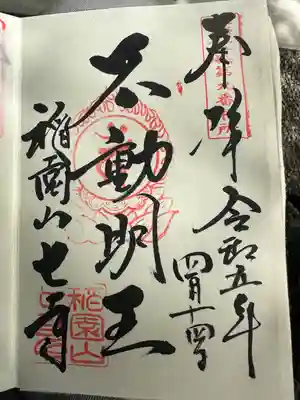 奉拝 令和五年
四月十四日
不動明王
稲園山七寺
稲園山